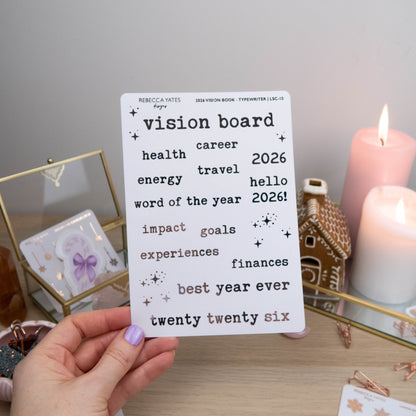 REBECCA YATES
designs
2026 VISION BOOK - TYPEWRITER | LSC-13
vision board
career
health
travel
2026
energy
hello
2026!
word of the year
impact
goals
experiences
finances
best year ever
twenty twenty six